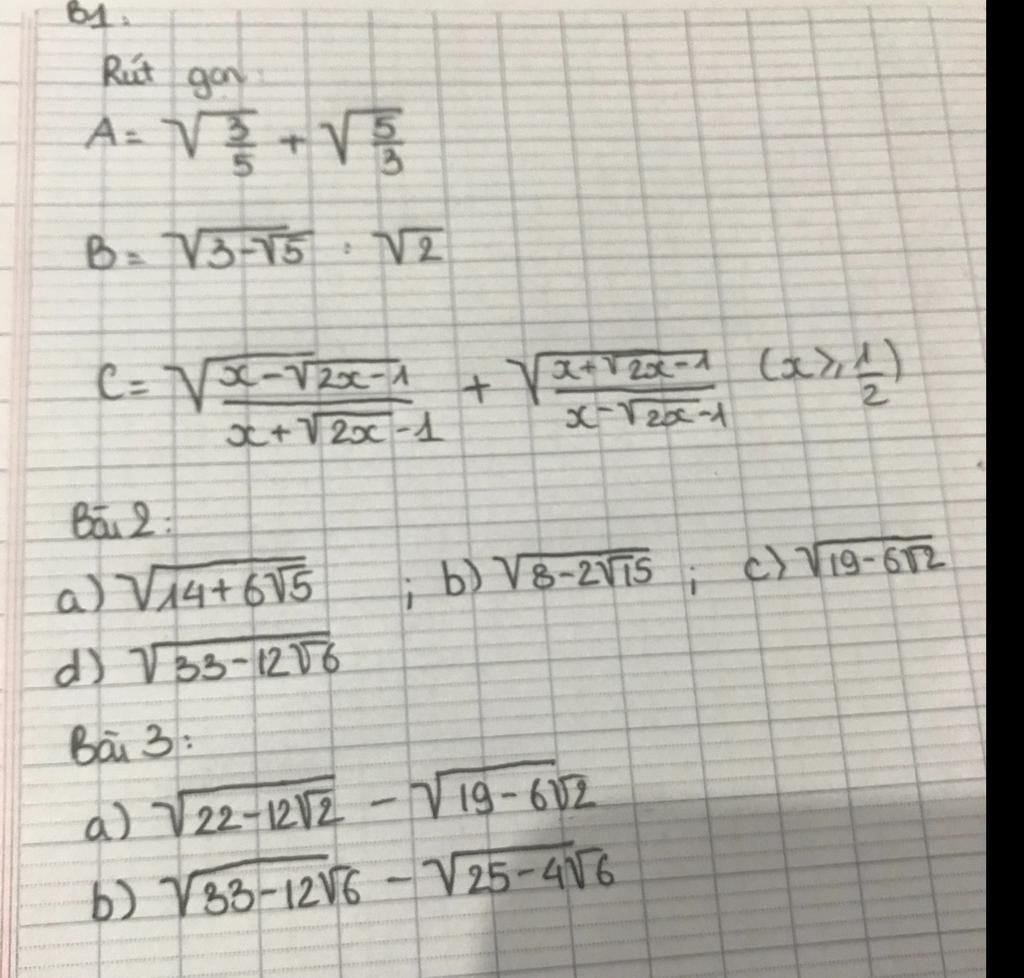 B1.
Rút gọn
A = √(3/5) + √(5/3)
B = √(3-√5) : √2
C = √((x-√(2x-1))/(x+√(2x)-1)) + √((x+√(2x-1))/(x-√(2x)-1)) (x ⩾ 1/2)
Bài 2:
a) √(14+6√5) ; b) √(8-2√15) ; c) √(19-6√2)
d) √(33-12√6)
Bài 3:
a) √(22-12√2) - √(19-6√2)
b) √(33-12√6) - √(25-4√6)